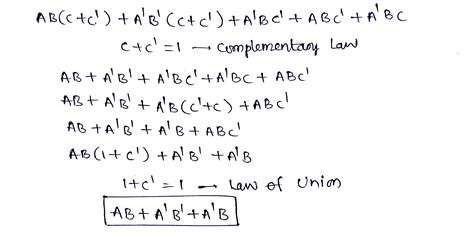 AB(C+C') + A'B'(C+C') + A'BC' + ABC' + A'BC
C+C' = 1 → Complementary Law
AB + A'B' + A'BC' + A'BC + ABC'
AB + A'B' + A'B(C'+C) + ABC'
AB + A'B' + A'B + ABC'
AB(1+C') + A'B' + A'B
1+C' = 1 → Law of Union
AB + A'B' + A'B